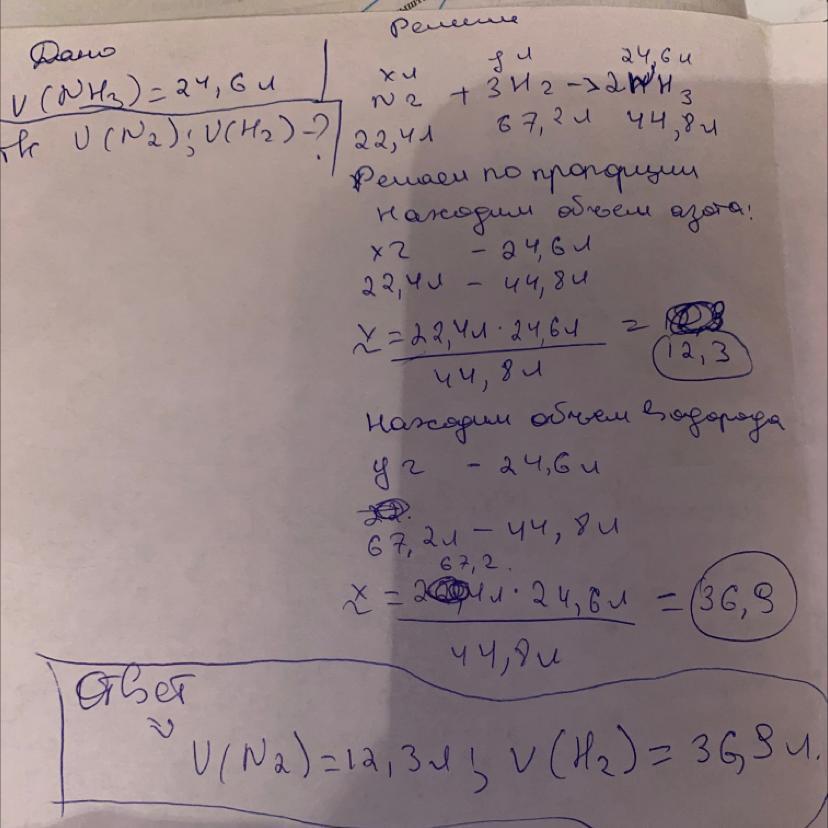 Дано
V(NH3)=24,6л
V(N2); V(H2)-?
Решение
xл yл 24,6л
N2 + 3H2 -> 2NH3
22,4л 67,2л 44,8л
Решаем по пропорции
Находим объем азота:
xг - 24,6л
22,4л - 44,8л
x = 22,4л · 24,6л =
44,8л
12,3
Находим объем водорода
yг - 24,6л
67,2л - 44,8л
67,2.
x = л · 24,6л = 36,9
44,8л
Ответ
V(N2)=12,3л; V(H2)=36,9л.